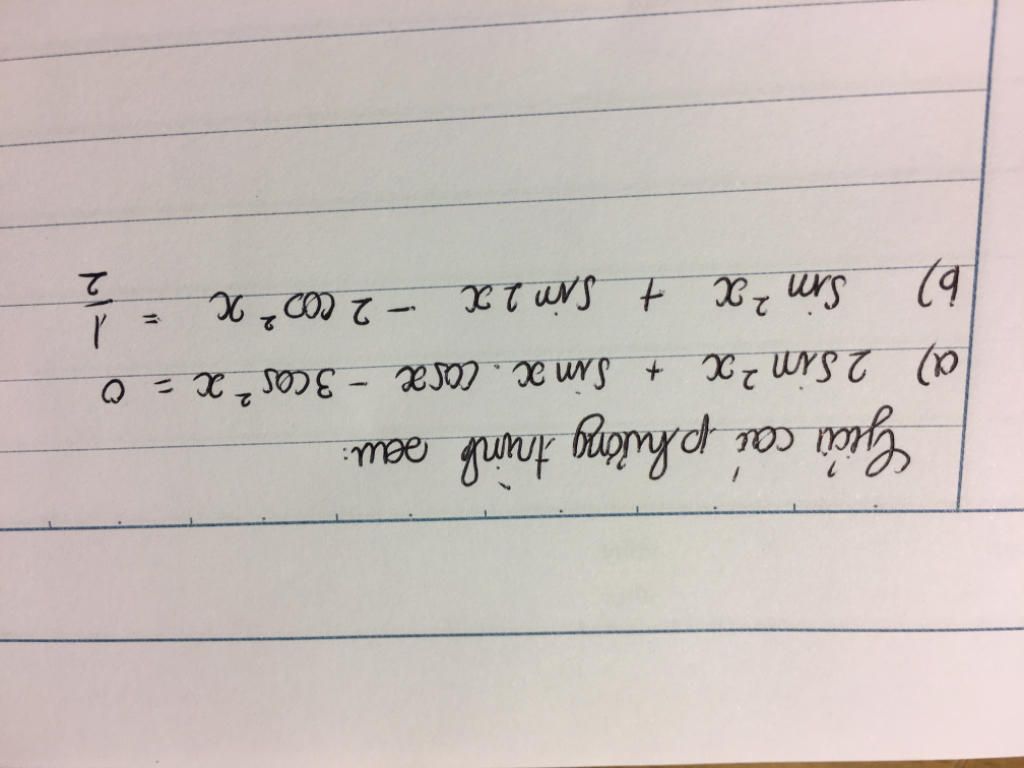 Giải các phương trình sau:
a) 2 sin²x + sin x . cosx - 3cos²x = 0
b) sin²x + sin 2x - 2 cos²x = 1/2